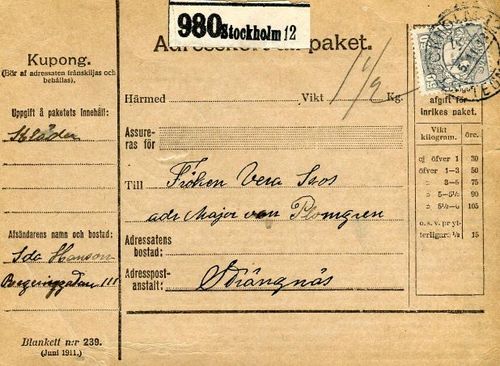 980 Stockholm 12
Kupong.
(Bör af adressaten frånskiljas och
behållas).
Uppgift å paketets innehåll:
Kläder
Afsändarens namn och bostad:
Ida Hanson
111
Blankett n:r 239.
(Juni 1911.)
paket.
Härmed Vikt 1 1/2 Kg.
Assure-
ras för
Till Fröken Vera Sxos
adr Major von Plomgren
Adressatens
bostad:
Adresspost-
anstalt: Strängnäs
afgift för
inrikes paket.
Vikt
kilogram. öre.
ej öfver 1 30
öfver 1-3 50
» 3-5 75
» 5-5½ 90
» 5½-6 105
o. s. v. pr yt-
terligare ½ 15